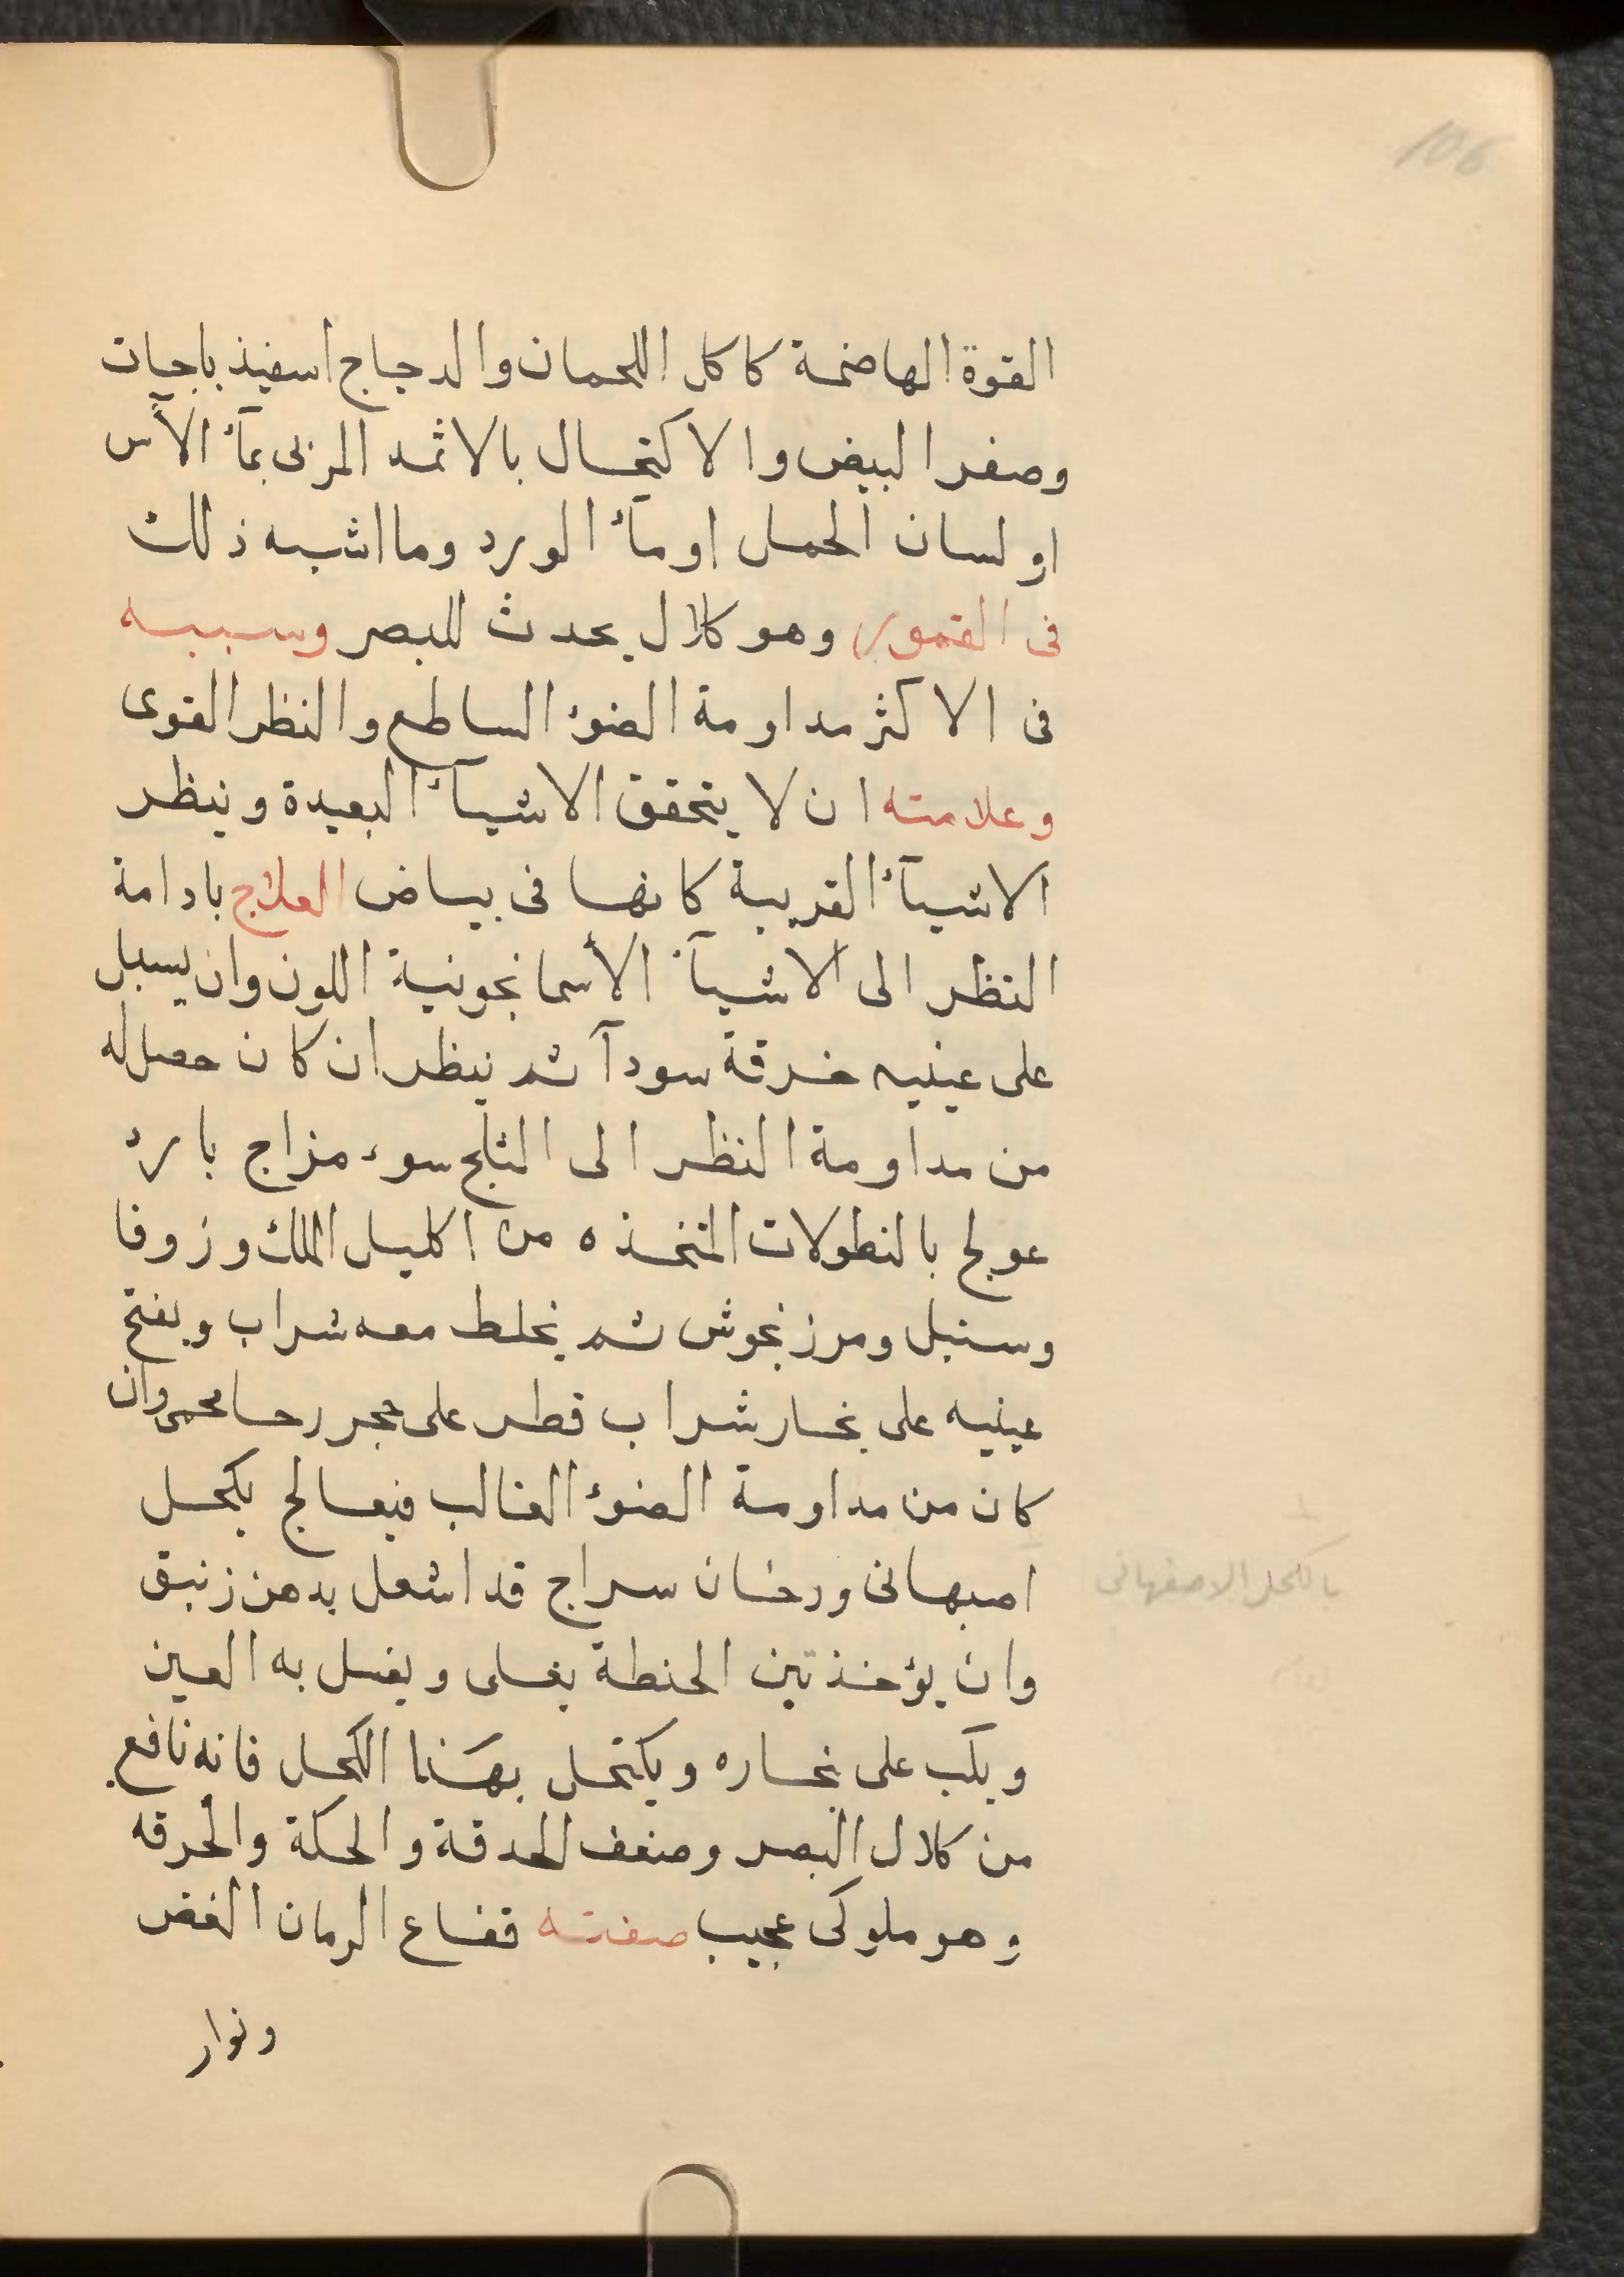 106
القوة الهاضمة كاكل اللحمان والدجاج اسفيذباجات
وصفر البيض والاكتحال بالاثمد المربى بمآء الآس
او لسان الحمل او مآء الورد وما اشبه ذلك
فى القمور وهو كلال يحدث للبصر وسببه
فى الاكثر مداومة الضوء الساطع والنظر القوى
وعلامته ان لا يتحقق الاشيآء البعيدة وينظر
الاشيآء القريبة كانها فى بياض العلاج بادامة
النظر الى الاشيآء الأسمانجونية اللون وان يسبل
على عينيه خرقة سودآ ثم ينظر ان كان حصل له
من مداومة النظر الى الثلج سوء مزاج بارد
عولج بالنطولات المتخذه من اكليل الملك وزوفا
وسنبل ومرزنجوش ثم يخلط معه شراب ويفتح
عينيه على بخار شراب قطر على حجر رحا محمى وان
كان من مداومة الضوء الغالب فيعالج بكحل
اصبهانى ودخان سراج قد اشعل بدهن زنبق
وان يؤخذ تبن الحنطة يغلى ويغسل به العين
ويكب على بخاره ويكتحل بهذا الكحل فانه نافع
من كلال البصر وضعف الحدقة والحكة والحرقه
وهو ملوكى عجيب صفته قفاع الرمان الغض
ونوار
بالكحل الاصفهانى